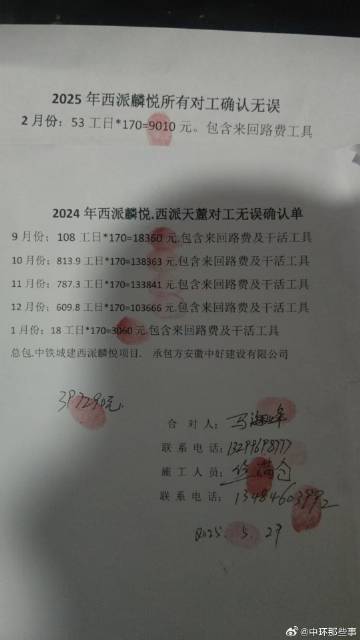 2025 年西派麟悦所有对工确认无误
2 月份：53 工日*170=9010 元。包含来回路费工具
2024 年西派麟悦.西派天麓对工无误确认单
9 月份；108 工日*170=18360 元.包含来回路费及干活工具
10 月份：813.9 工日*170=138363 元.包含来回路费及干活工具
11 月份：787.3 工日*170=133841 元.包含来回路费及干活工具
12 月份：609.8 工日*170=103666 元.包含来回路费及干活工具
1 月份：18 工日*170=3060 元.包含来回路费及干活工具
总包.中铁城建西派麟悦项目. 承包方安徽中好建设有限公司
397290元
合 对 人：马
联 系 电 话：13299698777
施 工 人 员：满仓
联 系 电 话：13484603992
2025. 5. 27
@中环那些事